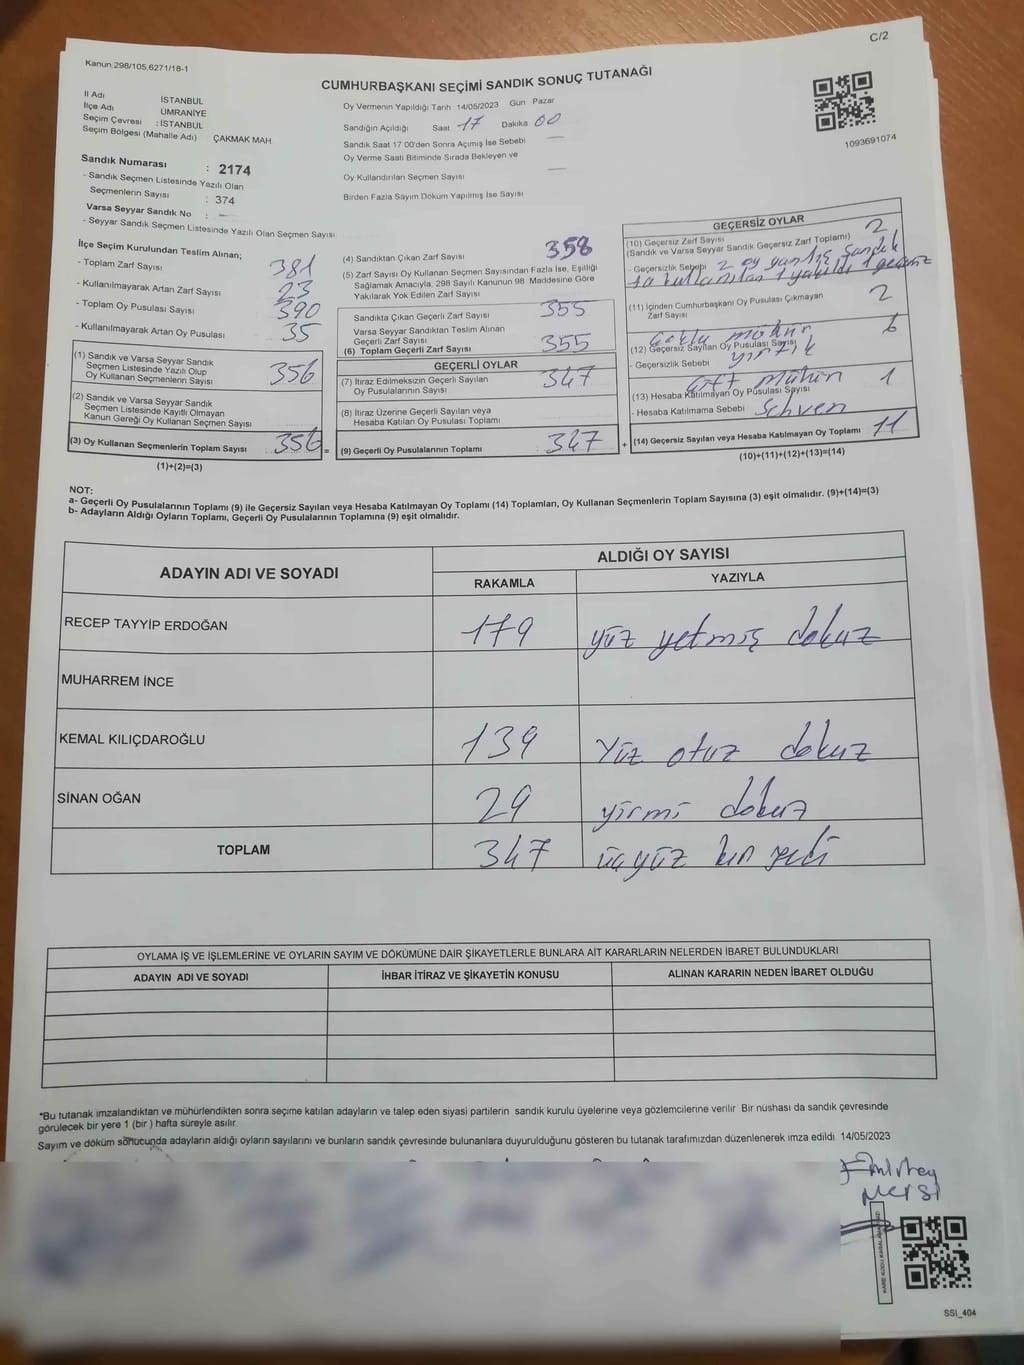 C/2
Kanun 298/105,6271/18-1
CUMHURBAŞKANI SEÇİMİ SANDIK SONUÇ TUTANAĞI
1093691074
İl Adı İSTANBUL
İlçe Adı ÜMRANİYE
Seçim Çevresi : İSTANBUL
Seçim Bölgesi (Mahalle Adı) ÇAKMAK MAH
Sandık Numarası : 2174
- Sandık Seçmen Listesinde Yazılı Olan
Seçmenlerin Sayısı : 374
Varsa Seyyar Sandık No : —
- Seyyar Sandık Seçmen Listesinde Yazılı Olan Seçmen Sayısı
Oy Vermenin Yapıldığı Tarih 14/05/2023 Gün Pazar
Sandığın Açıldığı Saat 17 Dakika 00
Sandık Saat 17 00'den Sonra Açımış İse Sebebi —
Oy Verme Saati Bitiminde Sırada Bekleyen ve
Oy Kullandırılan Seçmen Sayısı —
Birden Fazla Sayım Döküm Yapılmış İse Sayısı
İlçe Seçim Kurulundan Teslim Alınan;
- Toplam Zarf Sayısı 381
- Kullanılmayarak Artan Zarf Sayısı 23
- Toplam Oy Pusulası Sayısı 390
- Kullanılmayarak Artan Oy Pusulası 35
(1) Sandık ve Varsa Seyyar Sandık
Seçmen Listesinde Yazılı Olup
Oy Kullanan Seçmenlerin Sayısı 356
(2) Sandık ve Varsa Seyyar Sandık
Seçmen Listesinde Kayıtlı Olmayan
Kanun Gereği Oy Kullanan Seçmen Sayısı
(3) Oy Kullanan Seçmenlerin Toplam Sayısı 356 =
(1)+(2)=(3)
(4) Sandıktan Çıkan Zarf Sayısı 358
(5) Zarf Sayısı Oy Kullanan Seçmen Sayısından Fazla İse, Eşitliği
Sağlamak Amacıyla, 298 Sayılı Kanunun 98 Maddesine Göre
Yakılarak Yok Edilen Zarf Sayısı
Sandıkta Çıkan Geçerli Zarf Sayısı 355
Varsa Seyyar Sandıktan Teslim Alınan
Geçerli Zarf Sayısı
(6) Toplam Geçerli Zarf Sayısı 355
GEÇERLİ OYLAR
(7) İtiraz Edilmeksizin Geçerli Sayılan
Oy Pusulalarının Sayısı 347
(8) İtiraz Üzerine Geçerli Sayılan veya
Hesaba Katılan Oy Pusulası Toplamı
(9) Geçerli Oy Pusulalarının Toplamı 347 +
GEÇERSİZ OYLAR
(10) Geçersiz Zarf Sayısı 2
(Sandık ve Varsa Seyyar Sandık Geçersiz Zarf Toplamı)
- Geçersizlik Sebebi 2 oy yanlış sandık
ta kullanılan 1 yakıldı 1 geçersiz
(11) İçinden Cumhurbaşkanı Oy Pusulası Çıkmayan
Zarf Sayısı 2
(12) Geçersiz Sayılan Oy Pusulası Sayısı 6
- Geçersizlik Sebebi mühür yırtık
çift mühür
(13) Hesaba Katılmayan Oy Pusulası Sayısı 1
- Hesaba Katılmama Sebebi Sehven
(14) Geçersiz Sayılan veya Hesaba Katılmayan Oy Toplamı 11
(10)+(11)+(12)+(13)=(14)
NOT:
a- Geçerli Oy Pusulalarının Toplamı (9) ile Geçersiz Sayılan veya Hesaba Katılmayan Oy Toplamı (14) Toplamları, Oy Kullanan Seçmenlerin Toplam Sayısına (3) eşit olmalıdır. (9)+(14)=(3)
b- Adayların Aldığı Oyların Toplamı, Geçerli Oy Pusulalarının Toplamına (9) eşit olmalıdır.
ADAYIN ADI VE SOYADI
ALDIĞI OY SAYISI
RAKAMLA YAZIYLA
RECEP TAYYİP ERDOĞAN 179 yüz yetmiş dokuz
MUHARREM İNCE
KEMAL KILIÇDAROĞLU 139 Yüz otuz dokuz
SİNAN OĞAN 29 yirmi dokuz
TOPLAM 347 üçyüz kırk yedi
OYLAMA İŞ VE İŞLEMLERİNE VE OYLARIN SAYIM VE DÖKÜMÜNE DAİR ŞİKAYETLERLE BUNLARA AİT KARARLARIN NELERDEN İBARET BULUNDUKLARI
ADAYIN ADI VE SOYADI İHBAR İTİRAZ VE ŞİKAYETİN KONUSU ALINAN KARARIN NEDEN İBARET OLDUĞU
*Bu tutanak imzalandıktan ve mühürlendikten sonra seçime katılan adayların ve talep eden siyasi partilerin sandık kurulu üyelerine veya gözlemcilerine verilir Bir nüshası da sandık çevresinde
görülecek bir yere 1 (bir ) hafta süreyle asılır
Sayım ve döküm sonucunda adayların aldığı oyların sayılarını ve bunların sandık çevresinde bulunanlara duyurulduğunu gösteren bu tutanak tarafımızdan düzenlenerek imza edildi 14/05/2023
SSI_404